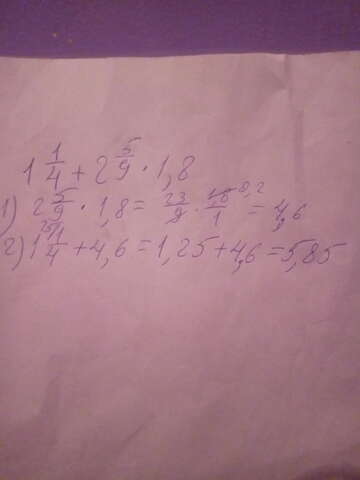 1 1/4 + 2 5/9 · 1,8
1) 2 5/9 · 1,8 = 23/9 · 18/1 0,2 = 4,6
2) 1 1/4 + 4,6 = 1,25 + 4,6 = 5,85